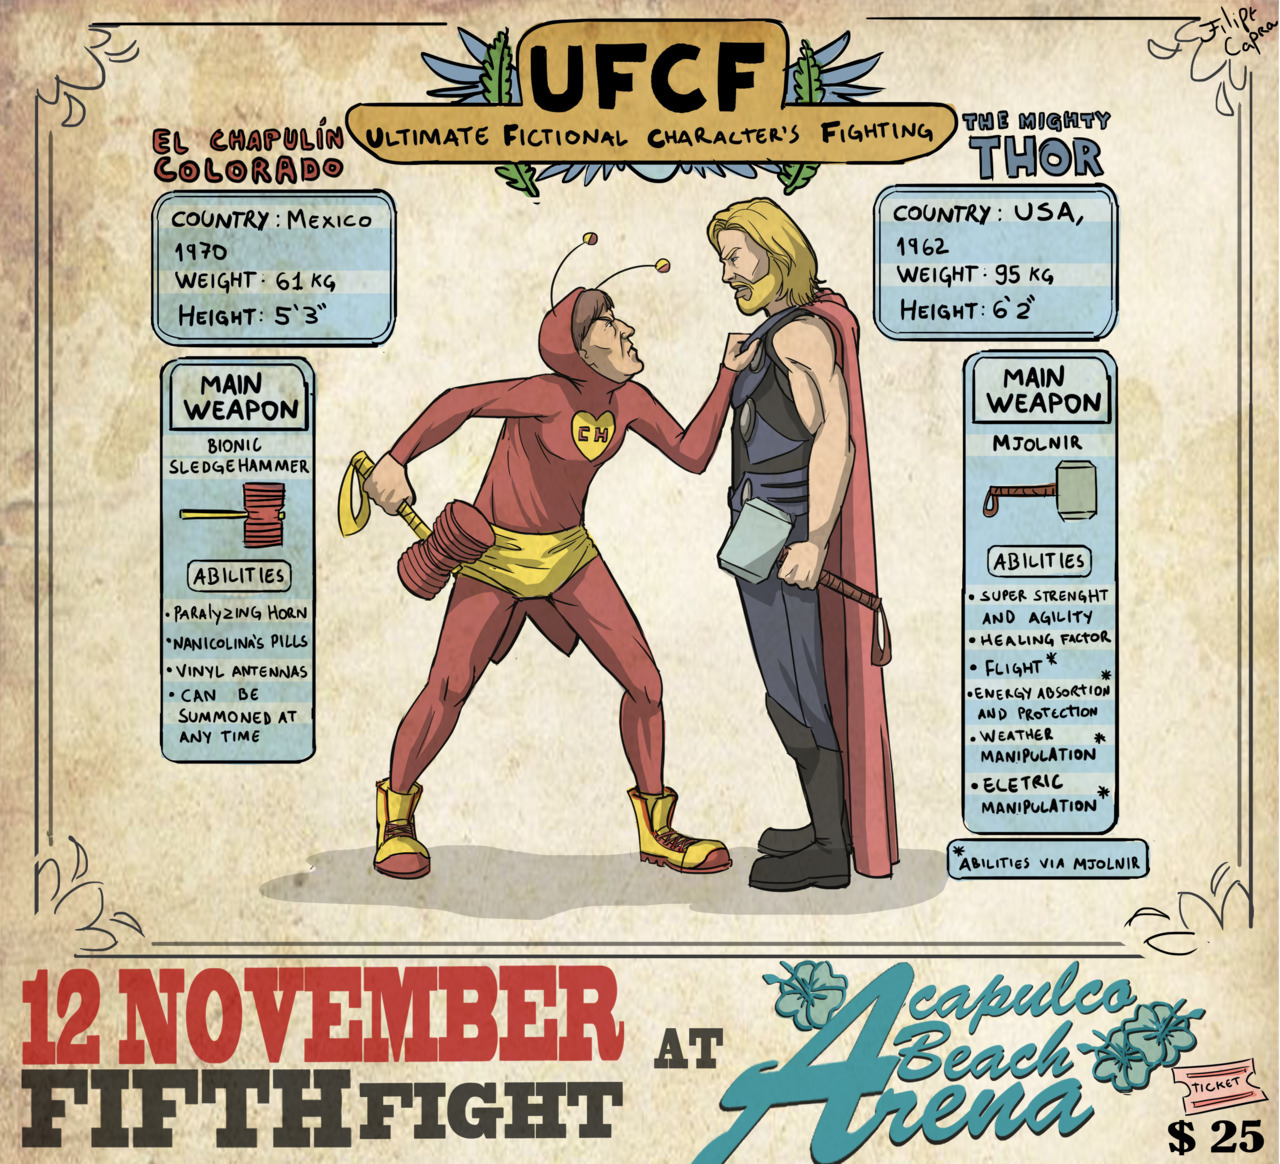 Filipe
Capra
UFCF
ULTIMATE FICTIONAL CHARACTER'S FIGHTING
EL CHAPULÍN
COLORADO
COUNTRY: MEXICO
1970
WEIGHT: 61 KG
HEIGHT: 5'3"
MAIN
WEAPON
BIONIC
SLEDGEHAMMER
ABILITIES
• PARALYZING HORN
• NANICOLINA'S PILLS
• VINYL ANTENNAS
• CAN BE
SUMMONED AT
ANY TIME
CH
THE MIGHTY
THOR
COUNTRY: USA,
1962
WEIGHT: 95 KG
HEIGHT: 6'2"
MAIN
WEAPON
MJOLNIR
ABILITIES
• SUPER STRENGHT
AND AGILITY
• HEALING FACTOR
• FLIGHT *
• ENERGY ABSORTION *
AND PROTECTION
• WEATHER *
MANIPULATION
• ELETRIC *
MANIPULATION
* ABILITIES VIA MJOLNIR
12 NOVEMBER
FIFTH FIGHT
AT
Acapulco
Beach
Arena
TICKET
$ 25